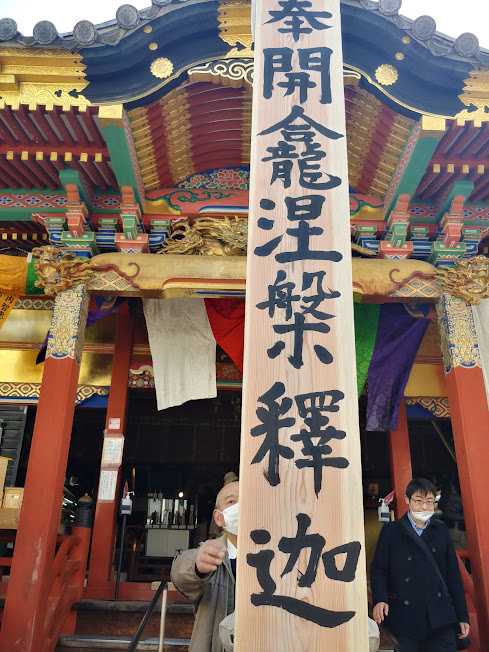 奉開龕涅槃釋迦